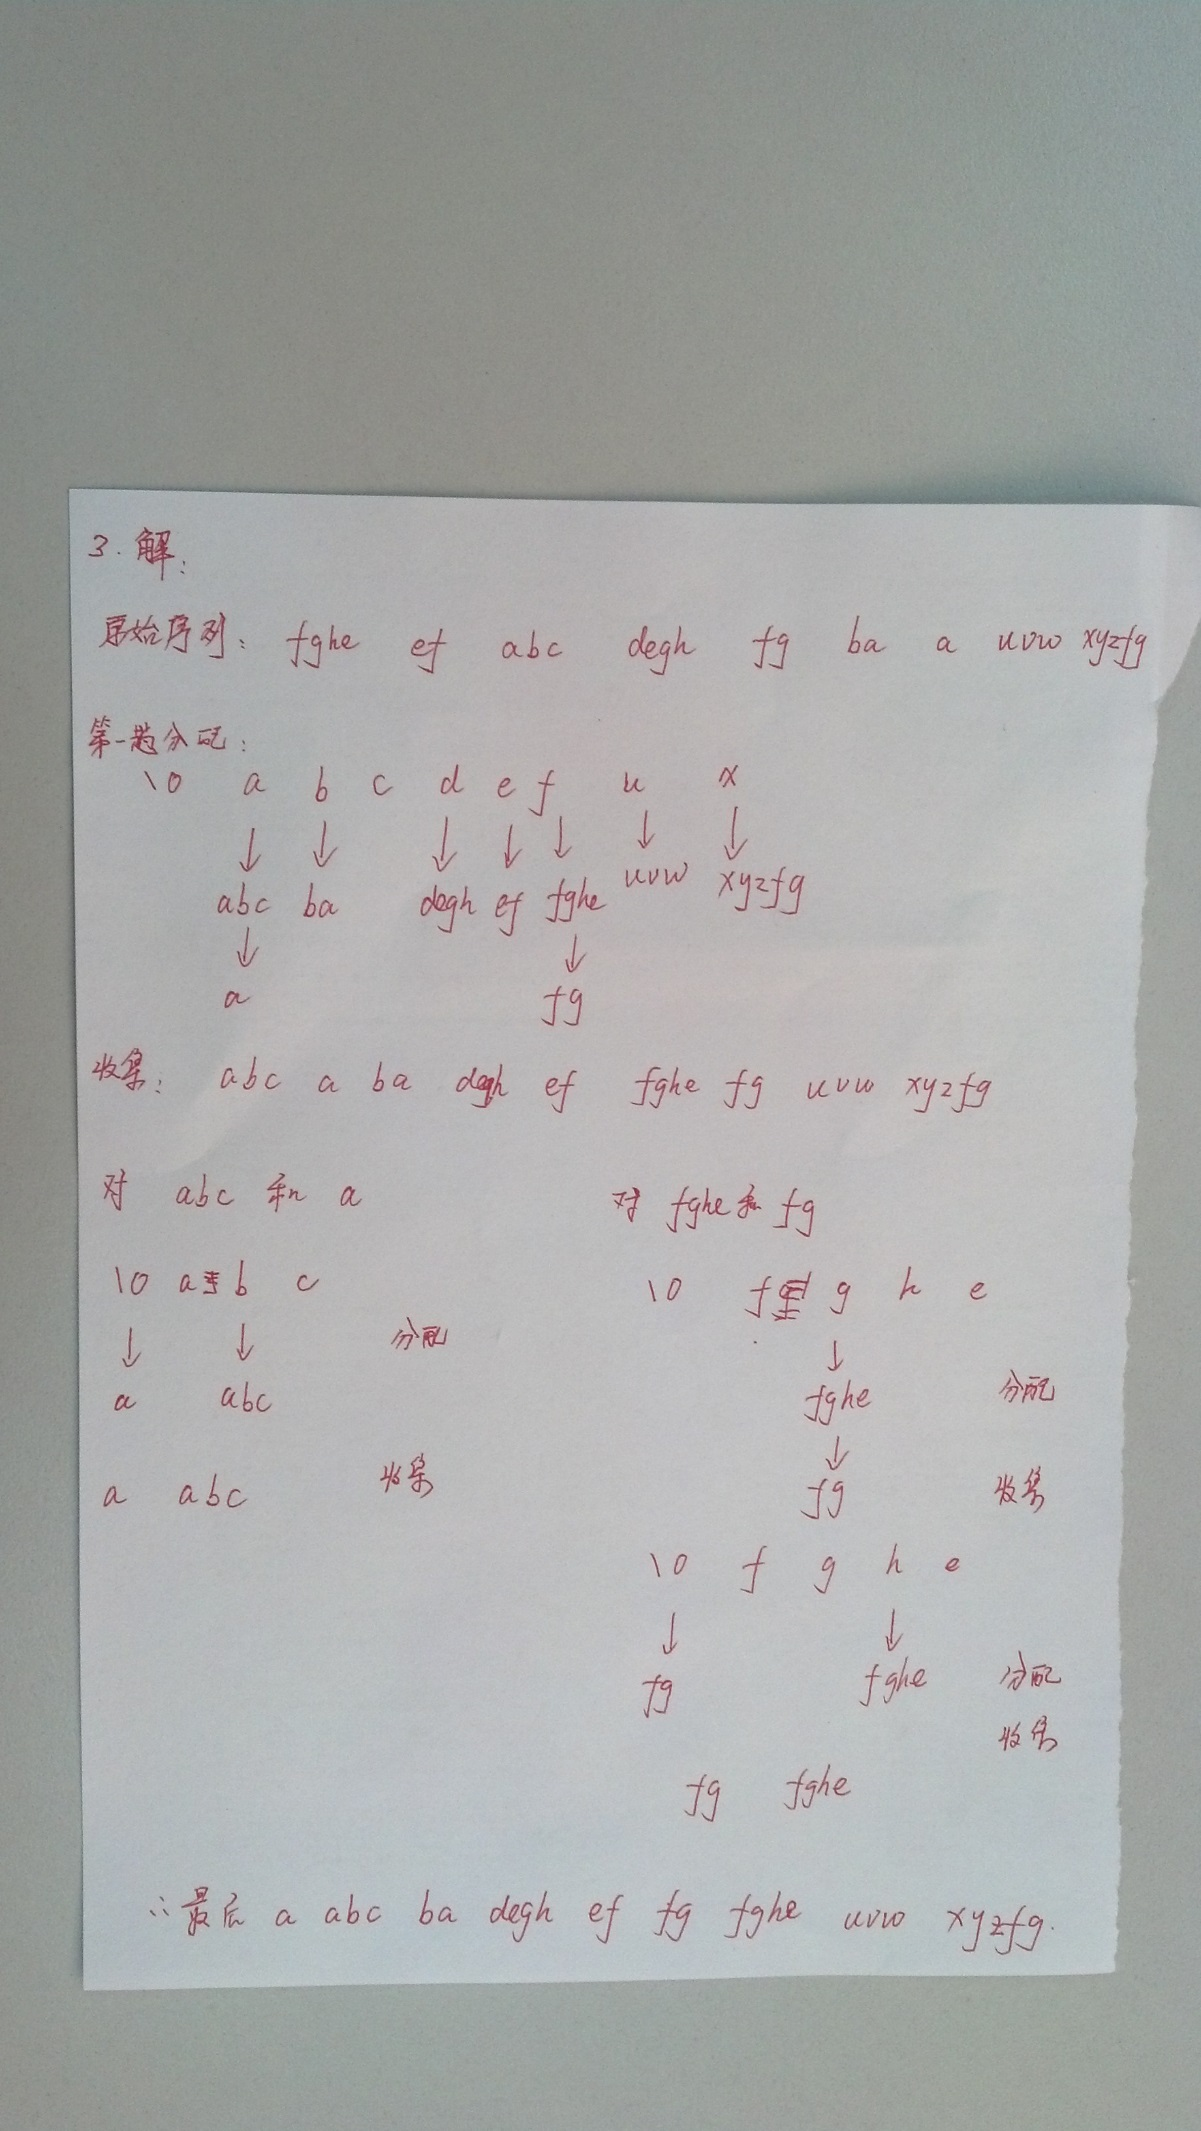 3. 解:
原始序列: fghe ef abc degh fg ba a uvw xyzfg
第一趟分配:
\0 a b c d e f u x
↓ ↓ ↓ ↓ ↓ ↓ ↓
abc ba degh ef fghe uvw xyzfg
↓ ↓
a fg
收集: abc a ba degh ef fghe fg uvw xyzfg
对 abc 和 a
\0 a b c
↓ ↓ 分配
a abc
a abc 收集
对 fghe 和 fg
\0 f g h e
↓
fghe 分配
↓
fg 收集
\0 f g h e
↓ ↓
fg fghe 分配
收集
fg fghe
∴最后 a abc ba degh ef fg fghe uvw xyzfg.